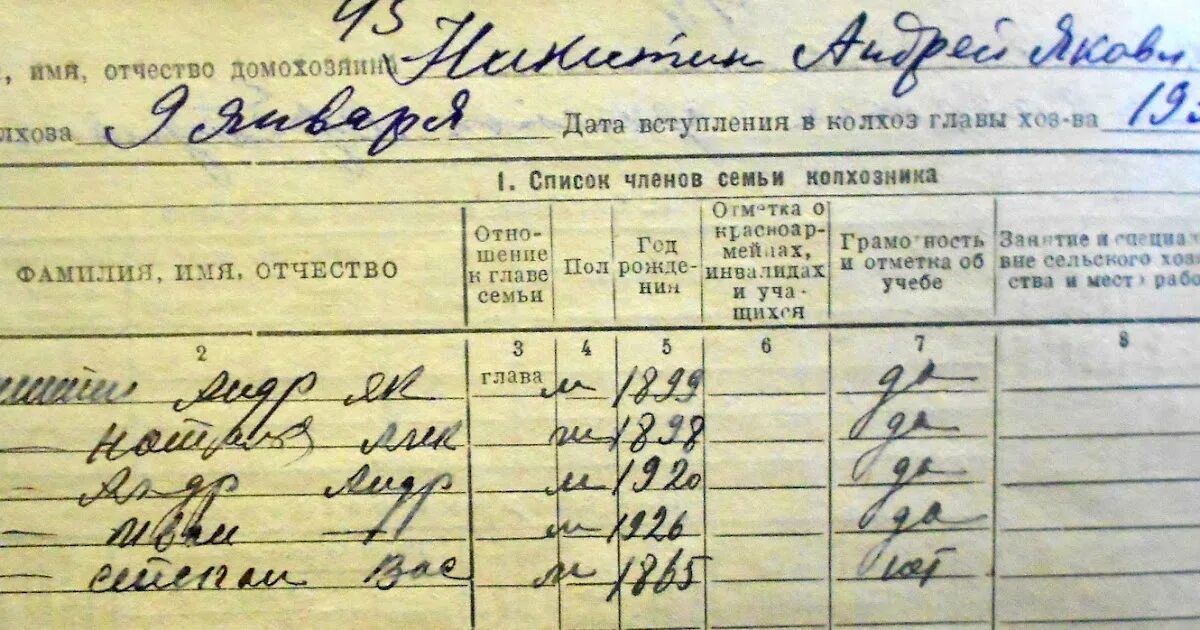 43
, имя, отчество домохозяина Никитин Андрей Яковл
лхова 9 Января Дата вступления в колхоз главы хоз-ва 19
1. Список членов семьи колхозника
ФАМИЛИЯ, ИМЯ, ОТЧЕСТВО
Отно-
шение
к главе
семьи
Пол
Год
рожде-
ния
Отметка о
красноар-
мейцах,
инвалидах
и уча-
щихся
Грамотность
и отметка об
учебе
Занятие и специал
вне сельского хозя
ства и место рабо
2 3 4 5 6 7 8
Андр Як глава м 1899 да
— Алек ж 1898 да
— Андр Андр м 1920 да
— Иван — м 1926 да
— Вас м 1865 нет